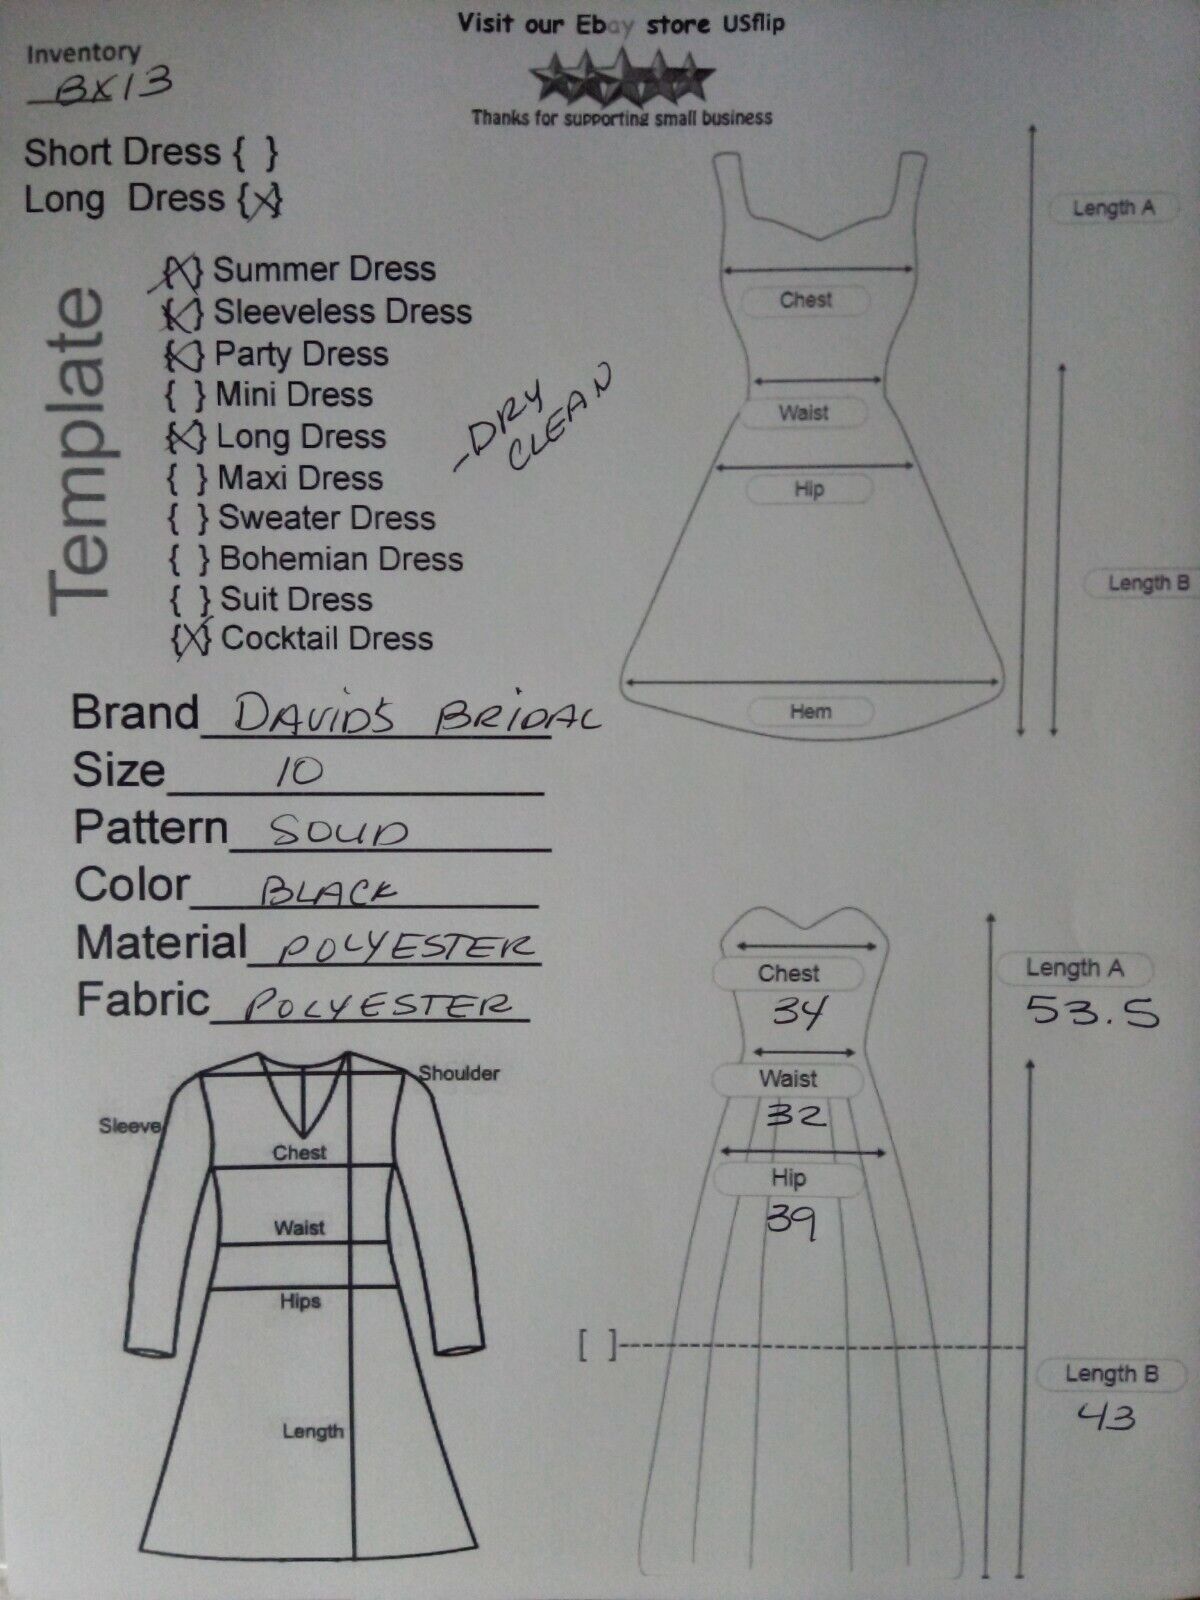 Visit our Ebay store USflip
Inventory
BX13
Thanks for supporting small business
Short Dress { }
Long Dress {X}
Template
{X} Summer Dress
{X} Sleeveless Dress
{X} Party Dress
{ } Mini Dress
{X} Long Dress
{ } Maxi Dress
{ } Sweater Dress
{ } Bohemian Dress
{ } Suit Dress
{X} Cocktail Dress
-DRY
CLEAN
Length A
Chest
Waist
Hip
Length B
Hem
Brand DAVID'S BRIDAL
Size 10
Pattern SOLID
Color BLACK
Material POLYESTER
Fabric POLYESTER
Shoulder
Sleeve
Chest
Waist
Hips
Length
Chest
34
Length A
53.5
Waist
32
Hip
39
[ ]
Length B
43